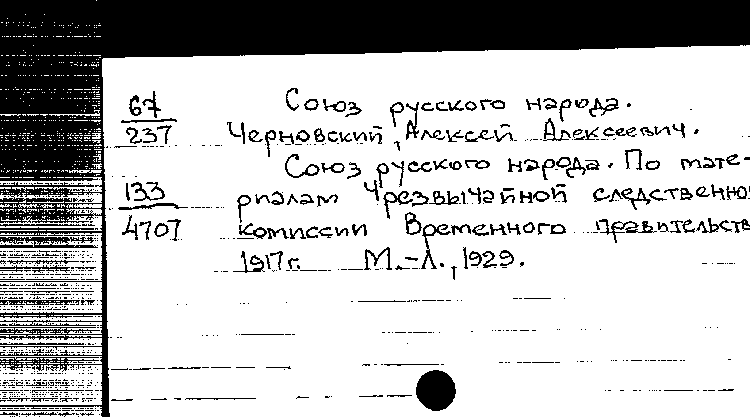 67 Союз русского народа.
237 Черновский, Алексей Алексеевич.
Союз русского народа. По мате-
133 риалам Чрезвычайной следственной
4707 комиссии Временного правительств
1917г. М.-Л., 1929.